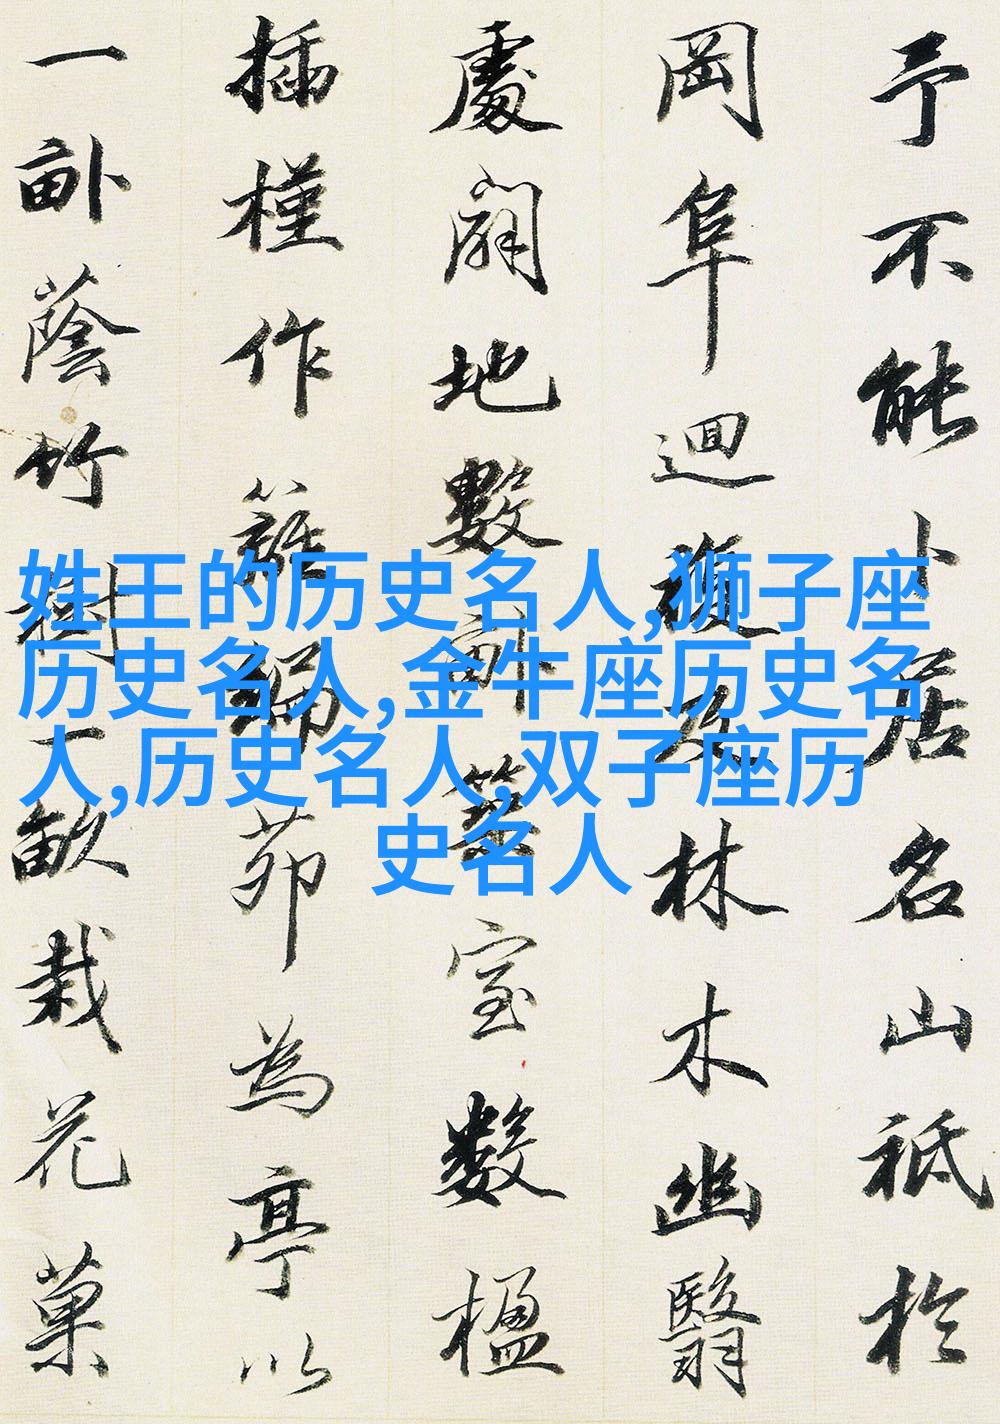 予不能卜居名山祗於
岡阜迴複及林木幽翳
處闢地數畝築室數楹
插槿作籬編茆為亭以
一畝蔭竹樹一畝栽花菓
姓王的历史名人,狮子座
历史名人,金牛座历史名
人,历史名人,双子座历
史名人